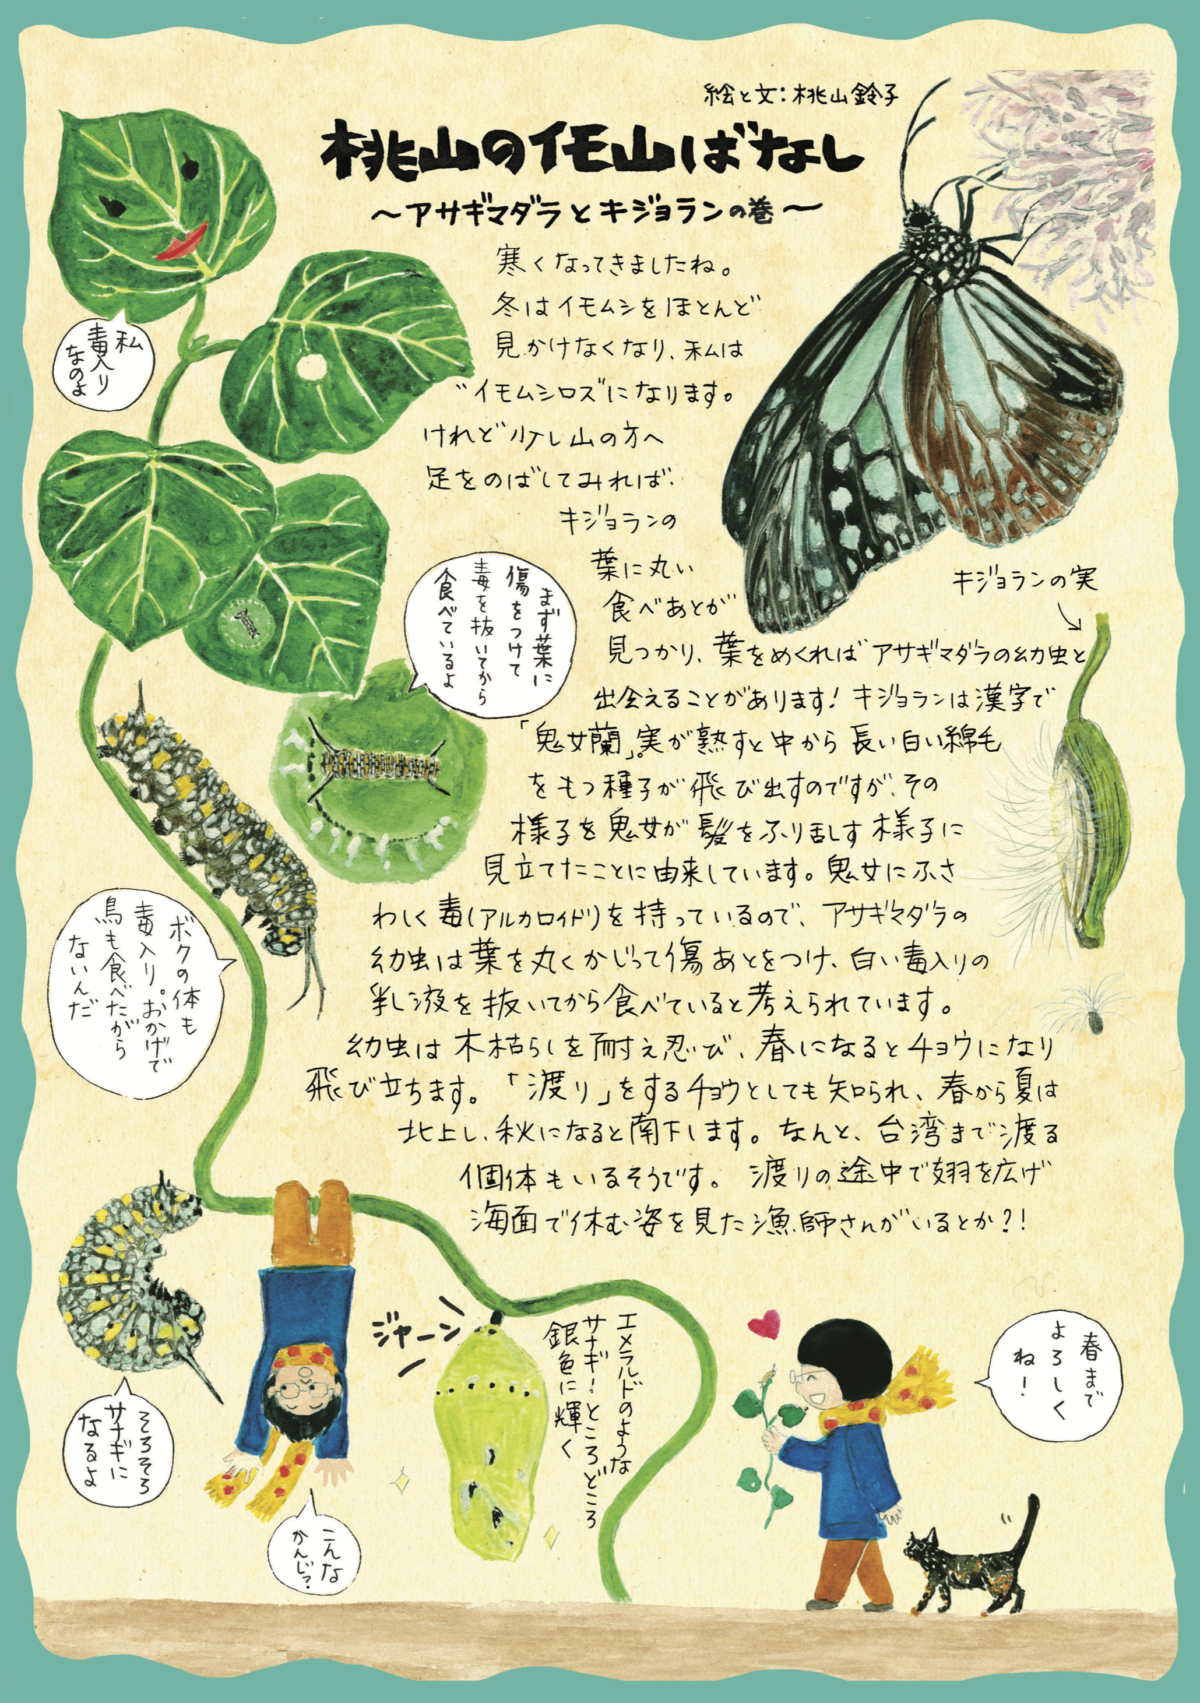 絵と文：桃山鈴子
桃山のイモ山ばなし
～アサギマダラとキジョランの巻～
寒くなってきましたね。
冬はイモムシをほとんど
見かけなくなり、私は
“イモムシロス”になります。
けれど少し山の方へ
足をのばしてみれば、
キジョランの
葉に丸い
食べあとが
見つかり、葉をめくればアサギマダラの幼虫と
出会えることがあります！キジョランは漢字で
「鬼女蘭」。実が熟すと中から長い白い綿毛
をもつ種子が飛び出すのですが、その
様子を鬼女が髪をふり乱す様子に
見立てたことに由来しています。鬼女にふさ
わしく毒（アルカロイド）を持っているので、アサギマダラの
幼虫は葉を丸くかじって傷あとをつけ、白い毒入りの
乳液を抜いてから食べていると考えられています。
幼虫は木枯らしを耐え忍び、春になるとチョウになり
飛び立ちます。「渡り」をするチョウとしても知られ、春から夏は
北上し、秋になると南下します。なんと、台湾まで渡る
個体もいるそうです。渡りの途中で翅を広げ
海面で休む姿を見た漁師さんがいるとか？！
私
毒入り
なのよ
まず葉に
傷をつけて
毒を抜いてから
食べているよ
キジョランの実
ボクの体も
毒入り。おかげで
鳥も食べたがら
ないんだ
そろそろ
サナギに
なるよ
こんな
かんじ？
ジャーン
エメラルドのような
サナギ！ところどころ
銀色に輝く
春まで
よろしく
ね！